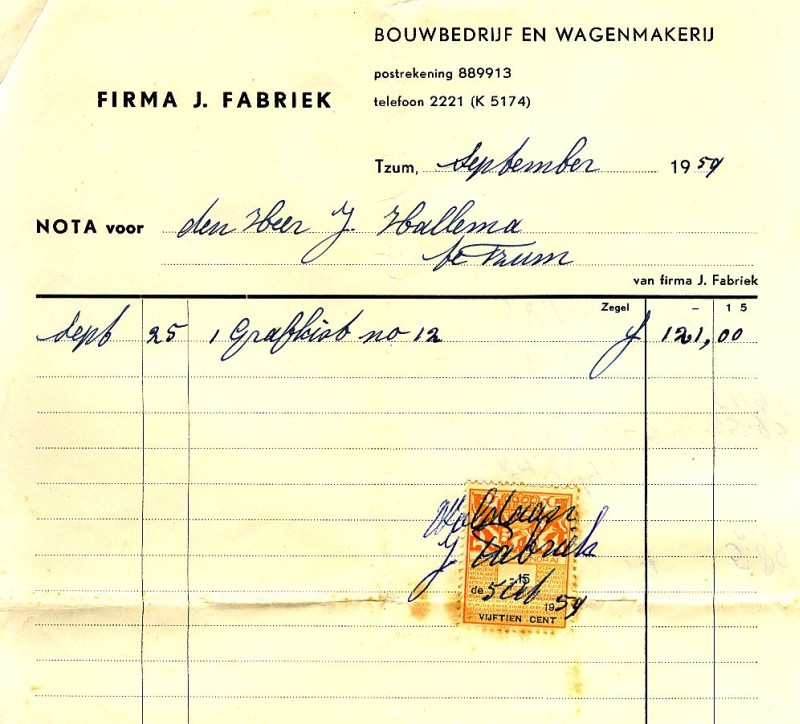 BOUWBEDRIJF EN WAGENMAKERIJ
postrekening 889913
FIRMA J. FABRIEK
telefoon 2221 (K 5174)
Tzum, September 1959
NOTA voor den Heer J. Hallema
te Tzum
van firma J. Fabriek
Zegel – 15
Sept 25 1 Grafkist no 12 f 121,00
Voldaan
J Fabriek
-.15
de 5 Oct 1959
VIJFTIEN CENT